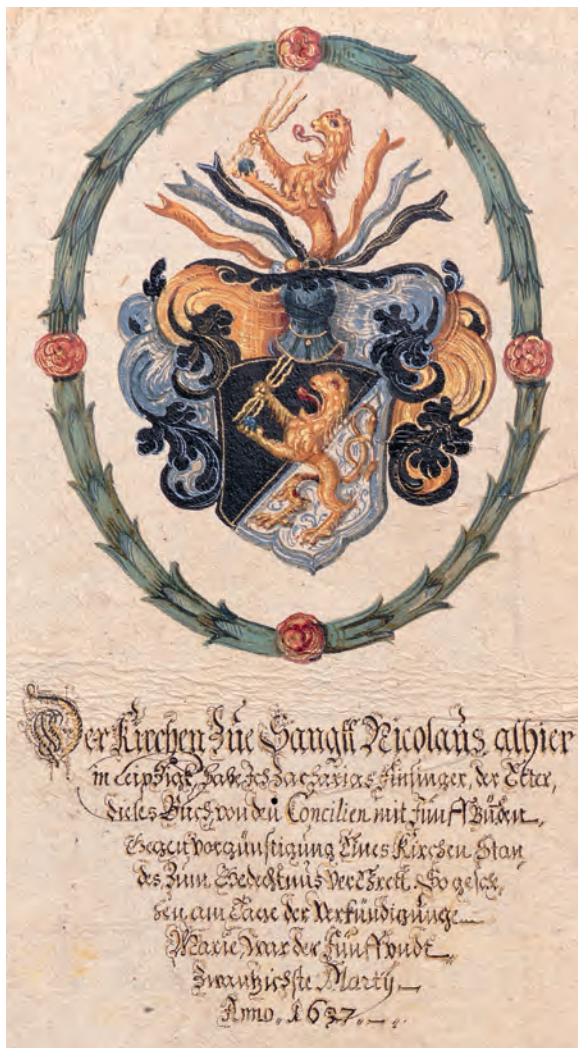 Der Kirchen Zue Sanct Nicolaus alhier
in Leipzigk, habe Ich Zacharias Finsinger, der Elter,
dieses Buch von den Concilien mit fünff Büden,
Gegen vorgünstigung Eines Kirchen Stan
des Zum Gedechtnüs verEhrett. So gesche
hen am Tage der Verkündigunge
Mariæ, war der fünff vndt
zwantzichste Marty
Anno. 1637.